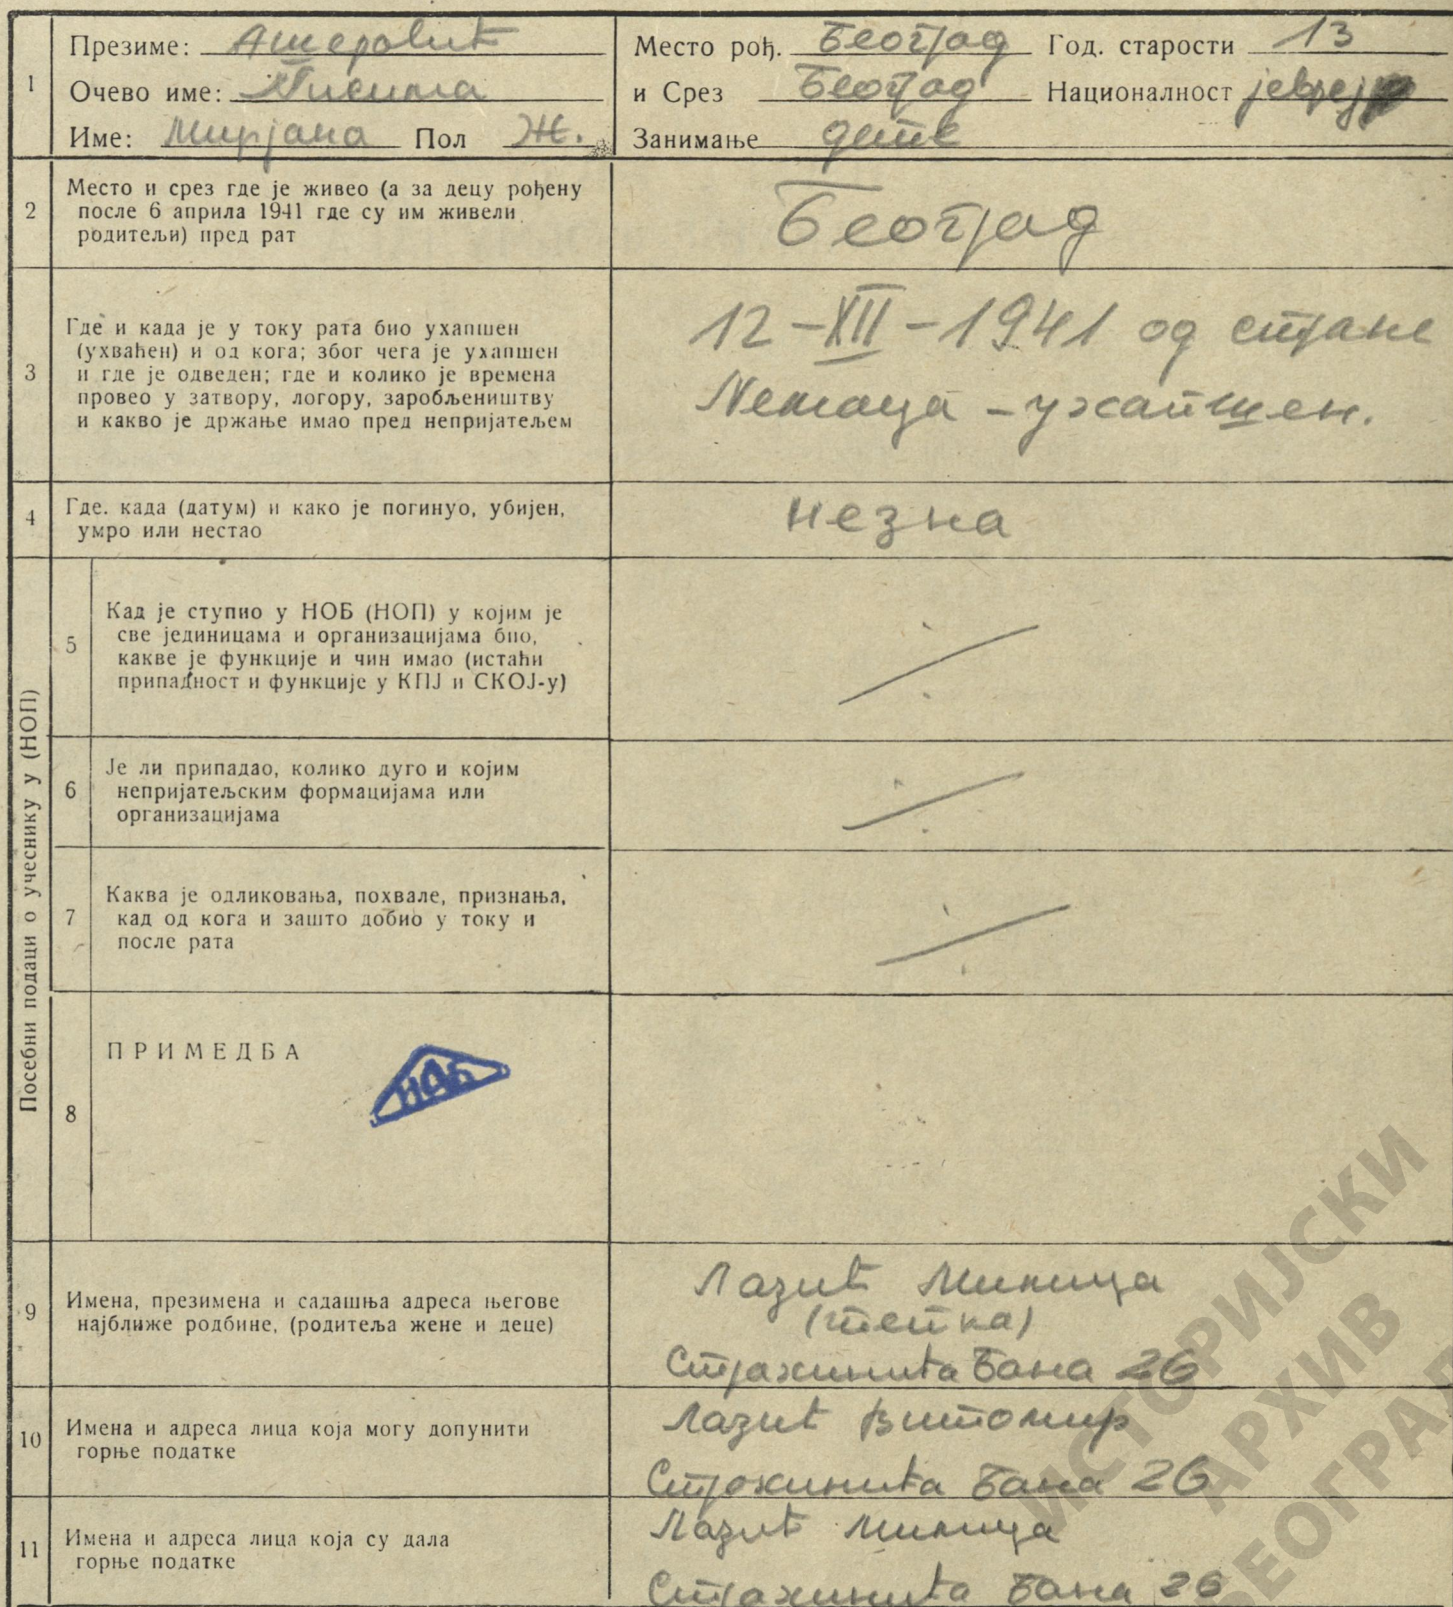 1
Презиме: Ашеровић
Очево име: Нисима
Име: Мирјана Пол Ж.
Место рођ. Београд Год. старости 13
и Срез Београд Националност јевреј
Занимање дете
2
Место и срез где је живео (а за децу рођену
после 6 априла 1941 где су им живели
родитељи) пред рат
Београд
3
Где и када је у току рата био ухапшен
(ухваћен) и од кога; због чега је ухапшен
и где је одведен; где и колико је времена
провео у затвору, логору, заробљеништву
и какво је држање имао пред непријатељем
12-XII-1941 од стране
Немаца - ухапшен.
4
Где. када (датум) и како је погинуо, убијен,
умро или нестао
незна
Посебни подаци о учеснику у (НОП)
5
Кад је ступио у НОБ (НОП) у којим је
све јединицама и организацијама био,
какве је функције и чин имао (истаћи
припадност и функције у КПЈ и СКОЈ-у)
6
Је ли припадао, колико дуго и којим
непријатељским формацијама или
организацијама
7
Каква је одликовања, похвале, признања,
кад од кога и зашто добио у току и
после рата
8
ПРИМЕДБА
9
Имена, презимена и садашња адреса његове
најближе родбине, (родитеља жене и деце)
Лазић Милица
(тетка)
Страхинића Бана 26
10
Имена и адреса лица која могу допунити
горње податке
Лазић Витомир
Страхинића Бана 26
11
Имена и адреса лица која су дала
горње податке
Лазић Милица
Страхинића Бана 26
ИСТОРИЈСКИ
АРХИВ
БЕОГРАД